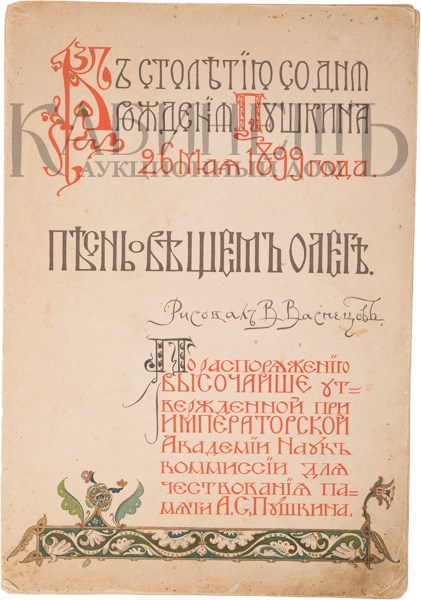 Къ столѣтію со дня
рожденія Пушкина
26 мая 1899 года.
КАБИНЕТЪ
АУКЦИОННЫЙ ДОМ
ПѢСНЬ О ВѢЩЕМЪ ОЛЕГѢ.
Рисовалъ В. Васнецовъ.
По распоряженію
ВЫСОЧАЙШЕ ут-
вержденной при
ИМПЕРАТОРСКОЙ
Академіи Наукъ
коммиссіи для
чествованія па-
мяти А.С.Пушкина.